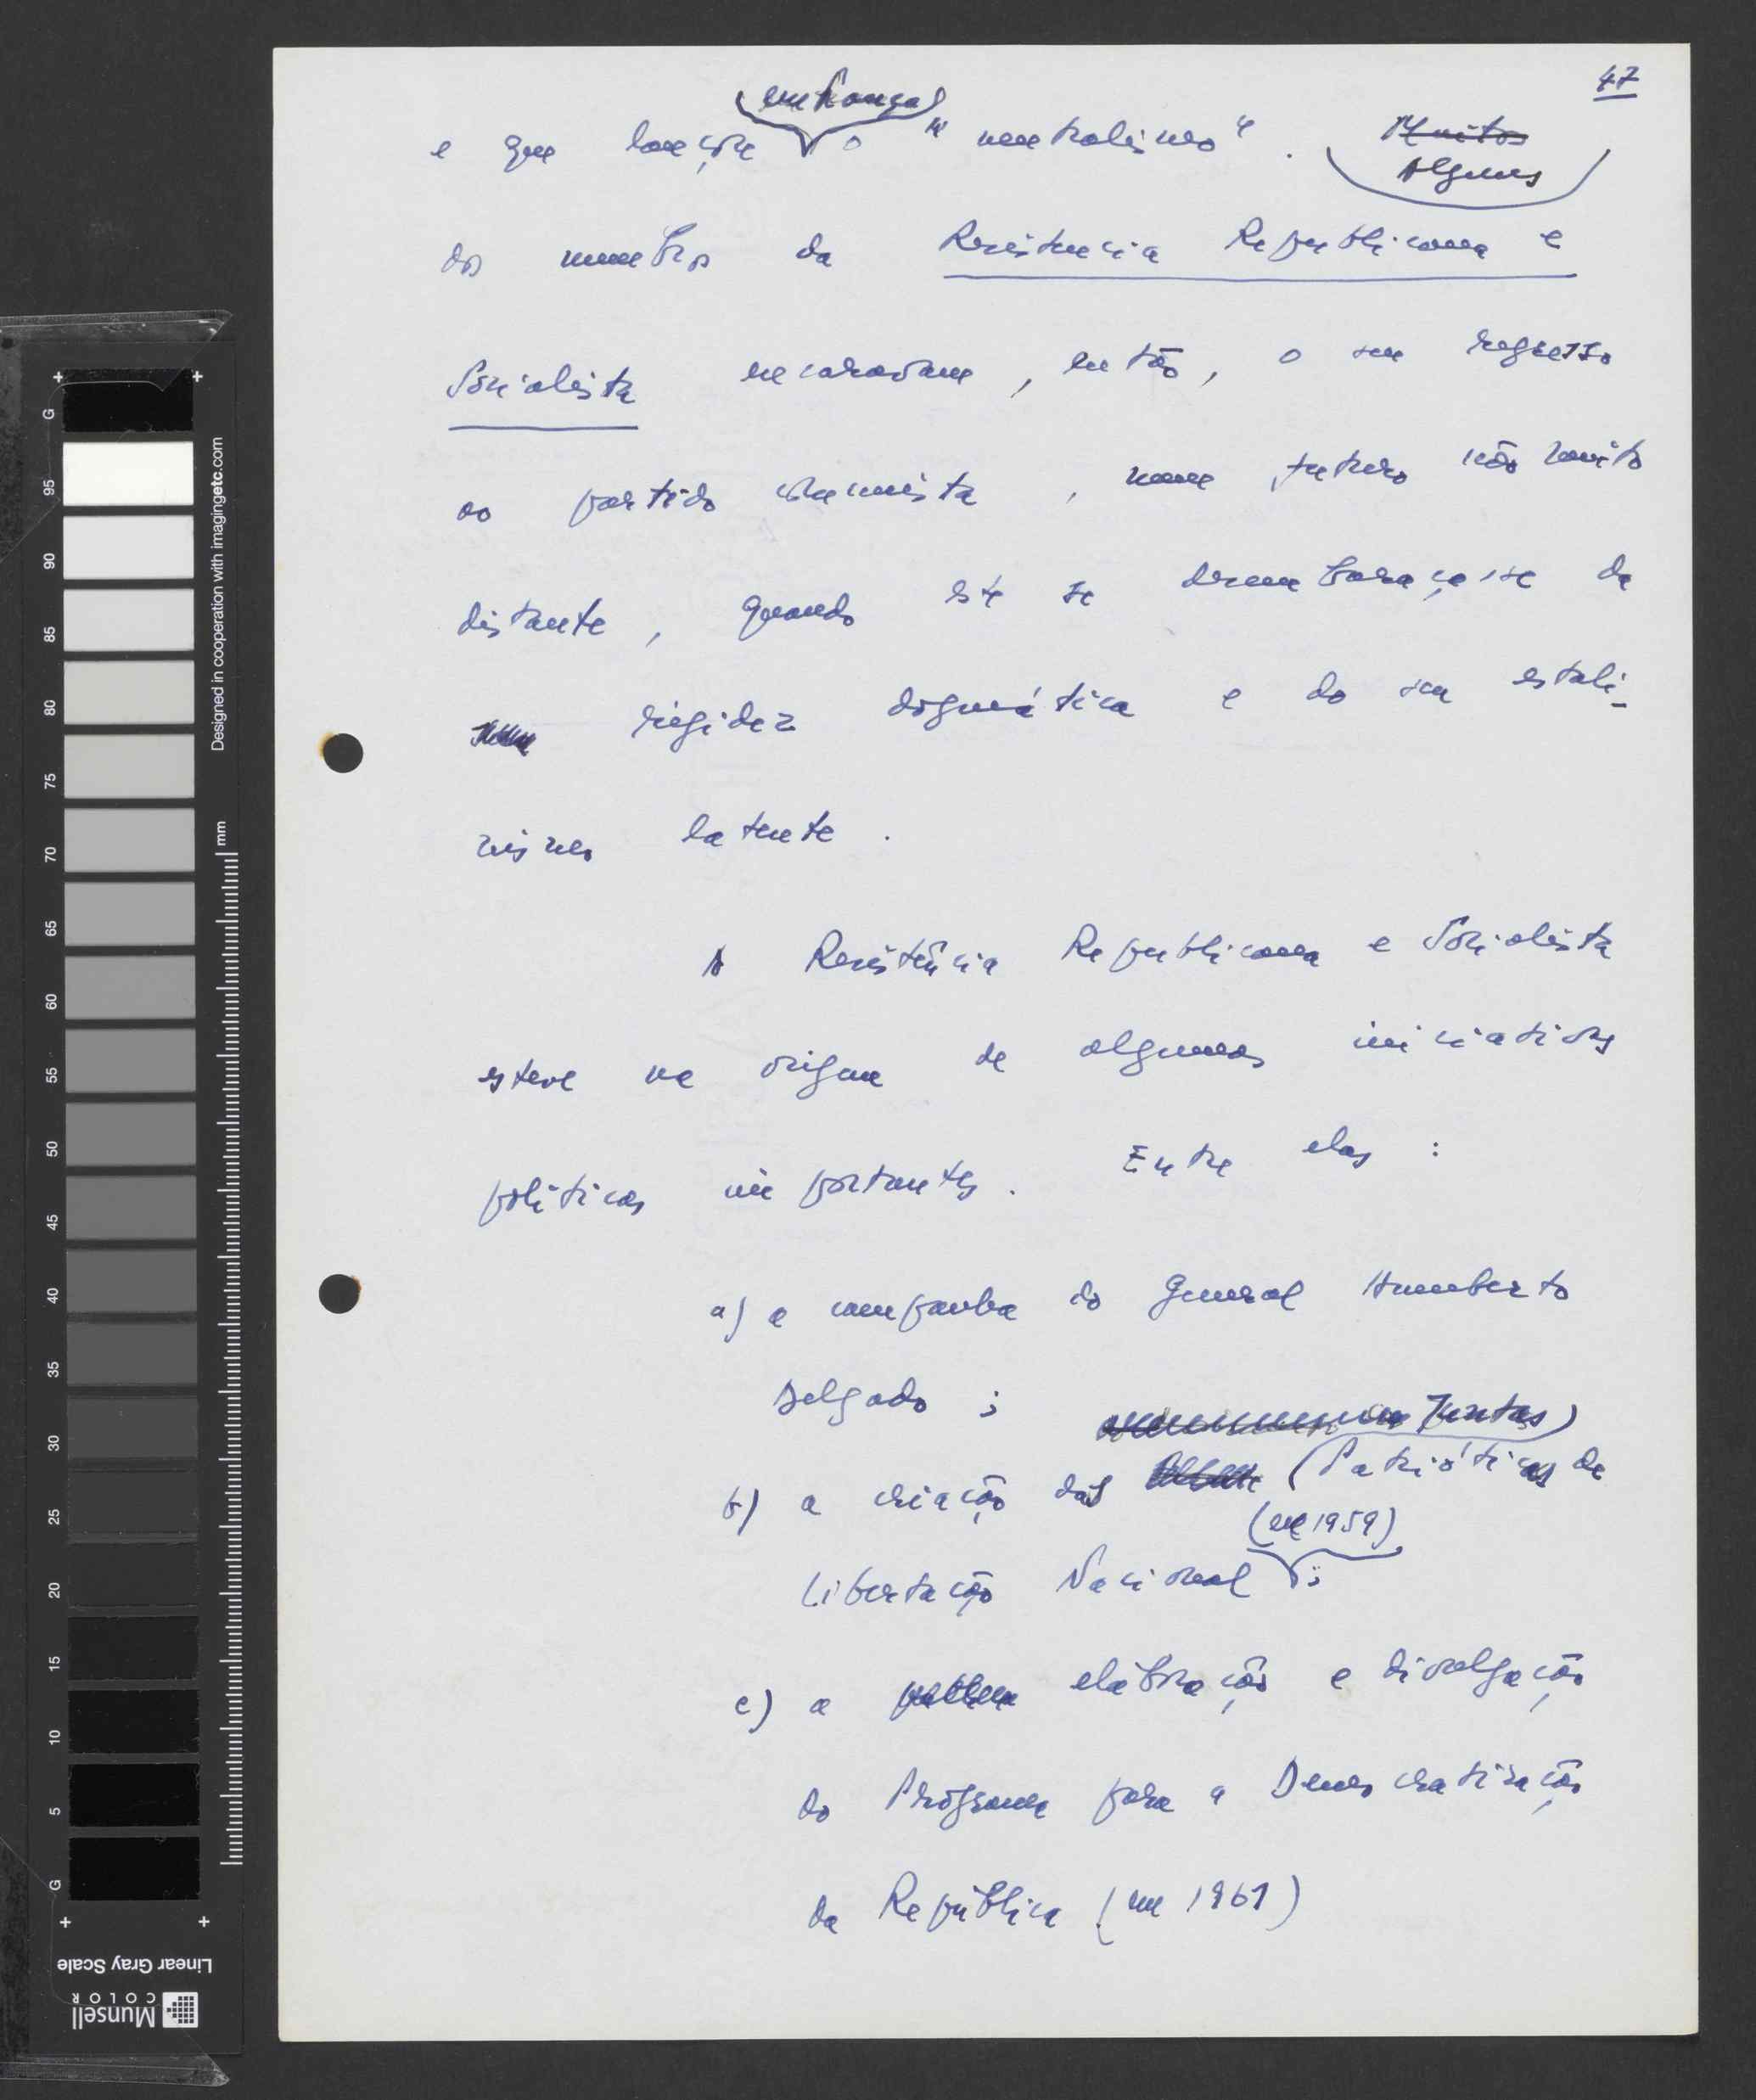 47
em França
e que lançou o "neutralismo". Muitos
Alguns
dos membros da Resistencia Republicana e
Socialista encaravam, então, o seu regresso
ao partido comunista, num futuro não muito
distante, quando este se desembaraçasse da
rigidez dogmática e do seu estali-
nismo latente.
A Resistência Republicana e Socialista
esteve na origem de algumas iniciativas
políticas importantes. Entre elas:
a) a campanha do General Humberto
Delgado;
Juntas
b) a criação das Patrióticas de
(em 1959)
Libertação Nacional;
c) a elaboração e divulgação
do Programa para a Democratização
da República (em 1961)
G
95
90
85
80
75
70
65
60
55
50
45
40
35
30
25
20
15
10
5
G
mm
Designed in cooperation with imagingetc.com
Linear Gray Scale
Munsell
COLOR